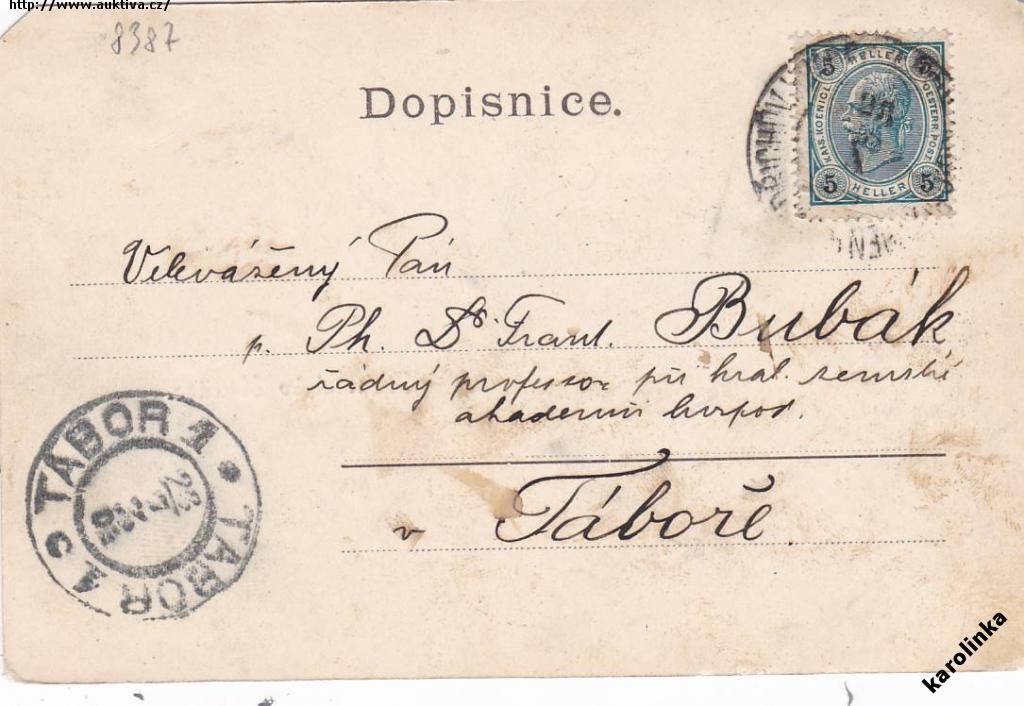 http://www.auktiva.cz/
8387
Dopisnice.
5 HELLER 5
KAIS. KOENIGL. OESTERR. POST.
5 HELLER 5
Velevážený Pán
p. Ph. Dr Frant. Bubák
řádný professor při král. zemské
akademii hospod.
v Táboře.
TÁBOR 1
TABOR 1
c
karolinka